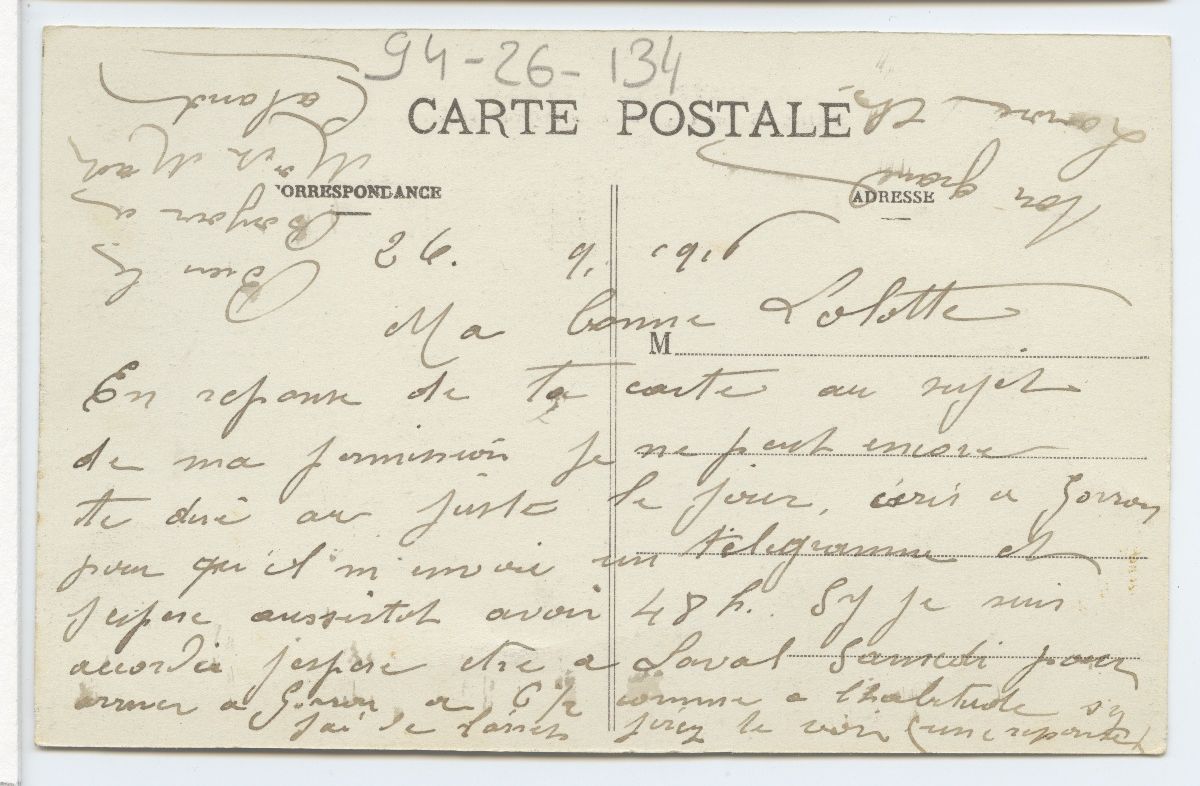 94-26-134
CARTE POSTALE
CORRESPONDANCE
ADRESSE
26. 9. 1916
Ma bonne Lolotte
M
En reponse de ta carte au sujet
de ma permission je ne peut encore
te dire au juste le jour, ecris a Gorron
pour qu'il m'envoie un télégramme et
j'espere aussistot avoir 48 h. Sy je suis
accordée j'espere etre a Laval Samedi pour
arriver a Gorron a 6 1/2 comme a l'habitude sy
j'ai le plaisir
le voir (une reponse)
Bien le
Bonjour a
Mr et Mad
Ton grand